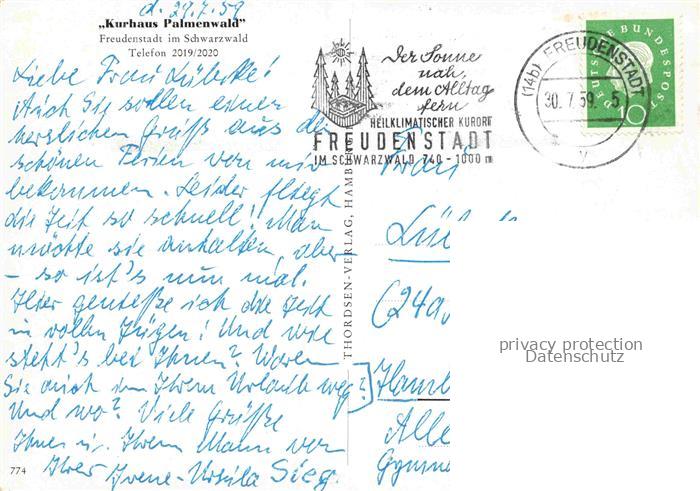 d. 29.7.59
„Kurhaus Palmenwald"
Freudenstadt im Schwarzwald
Telefon 2019/2020
Liebe Frau Lübcke!
Auch Sie sollen einen
herzlichen Gruß aus den
schönen Ferien von mir
bekommen. Leider fliegt
die Zeit so schnell! Man
möchte sie anhalten, aber
– so ist's nun mal.
Hier genieße ich die Zeit
in vollen Zügen! Und wie
steht's bei Ihnen? Waren
Sie auch in Ihrem Urlaub weg?
Und wo? Viele Grüße
Ihnen u. Ihrem Mann von
Ihrer Irene-Ursula Sieg.
774
THORDSEN-VERLAG, HAMBURG
Der Sonne
nah,
dem Alltag
fern
HEILKLIMATISCHER KURORT
FREUDENSTADT
IM SCHWARZWALD 740-1000 m
(14b) FREUDENSTADT
30.7.59.-5
v
DEUTSCHE BUNDESPOST
10
Frau
Lü
(24a
Hamb
Alle
Gymn
privacy protection
Datenschutz